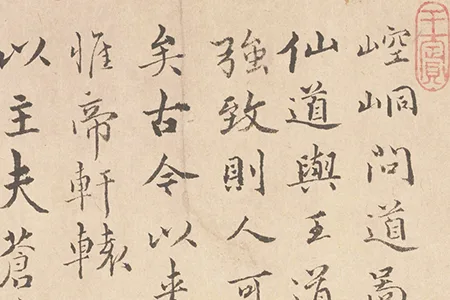 崆峒問道啚
仙道與王道
強致則人可
矣古今以来
惟帝軒轅
以主夫蒼